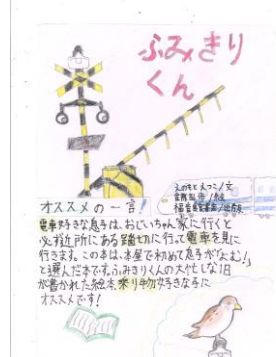 ふみきり
くん
えのもと えつこ/文
福音館書店/出版
オススメの一言!
電車好きな息子は、おじいちゃん家に行くと
必ず近所にある踏切に行って電車を見に
行きます。この本は、本屋で初めて息子が「よむ!」
と選んだ本です。ふみきりくんの大忙しな1日
が書かれた絵本、乗り物好きな子に
オススメです!